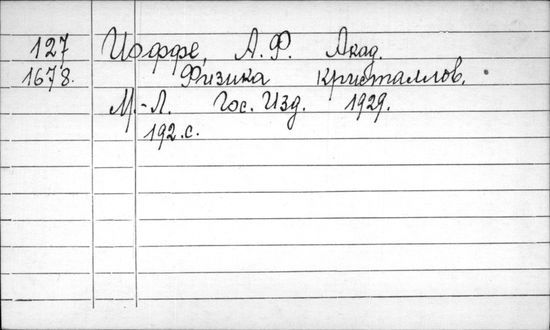 127 Иоффе, А.Ф. Акад.
1678. Физика кристаллов.
М.-Л. Гос. Изд. 1929.
192.с.